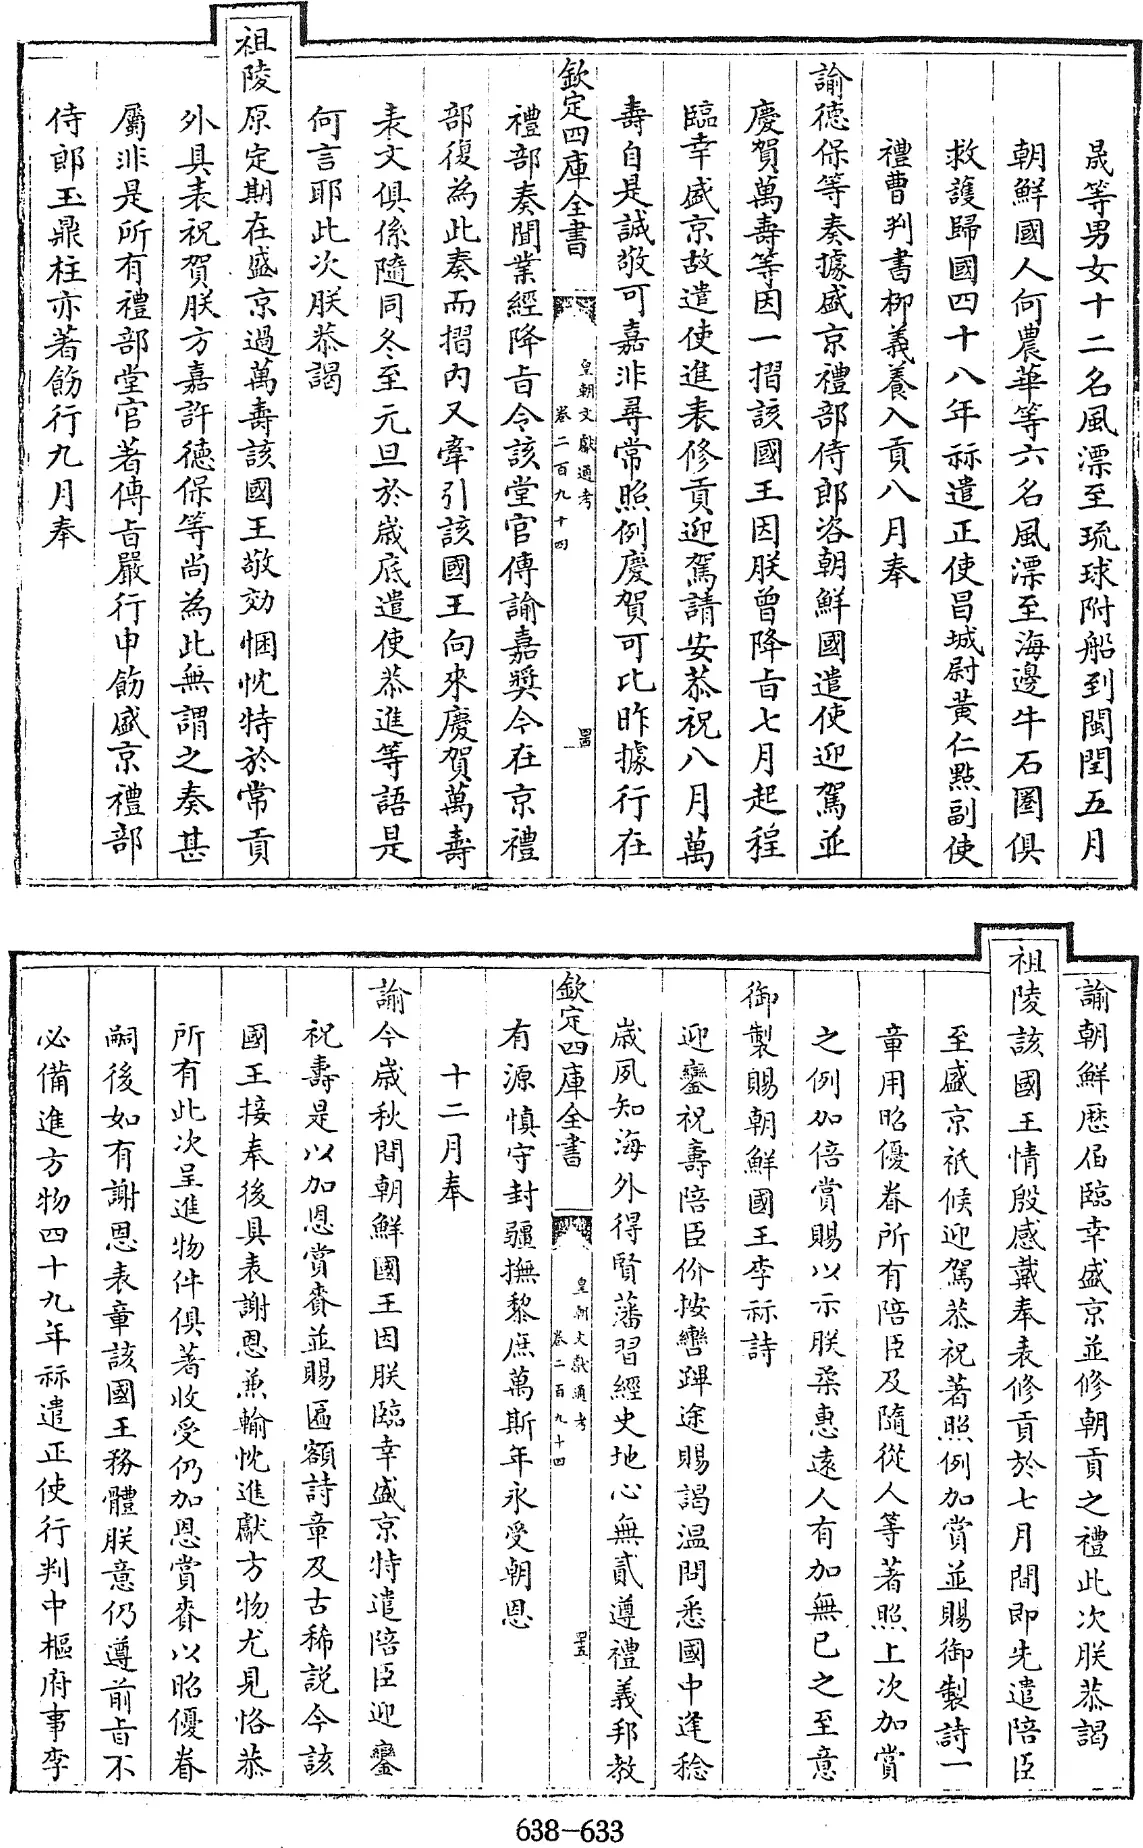 晟等男女十二名風漂至琉球附船到閩閏五月
朝鮮國人何農華等六名風漂至海邊牛石圈俱
救護歸國四十八年祘遣正使昌城尉黄仁㸃副使
禮曹判書柳義養入貢八月奉
諭徳保等奏據盛京禮部侍郎咨朝鮮國遣使迎駕並
慶賀萬壽等因一摺該國王因朕曾降㫖七月起程
臨幸盛京故遣使進表修貢迎駕請安恭祝八月萬
壽自是誠敬可嘉非尋常照例慶賀可比昨據行在
欽定四庫全書
皇朝文獻通考
卷二百九十四
禮部奏聞業經降㫖令該堂官傳諭嘉奬今在京禮
部復為此奏而摺内又牽引該國王向來慶賀萬壽
表文俱係隨同冬至元旦於嵗底遣使恭進等語是
何言耶此次朕恭謁
祖陵原定期在盛京過萬壽該國王敬効悃忱特於常貢
外具表祝賀朕方嘉許徳保等尚為此無謂之奏甚
屬非是所有禮部堂官著傳㫖嚴行申飭盛京禮部
侍郎玉鼎柱亦著飭行九月奉
諭朝鮮歴届臨幸盛京並修朝貢之禮此次朕恭謁
祖陵該國王情殷感戴奉表修貢於七月間即先遣陪臣
至盛京祇候迎駕恭祝著照例加賞並賜御製詩一
章用昭優眷所有陪臣及隨從人等著照上次加賞
之例加倍賞賜以示朕柔惠遠人有加無已之至意
御製賜朝鮮國王李祘詩
迎鑾祝壽陪臣价按轡蹕途賜謁温問悉國中逢稔
嵗夙知海外得賢藩習經史地心無貳遵禮義邦教
欽定四庫全書
皇朝文獻通考
卷二百九十四
有源慎守封疆撫黎庶萬斯年永受朝恩
十二月奉
諭今嵗秋間朝鮮國王因朕臨幸盛京特遣陪臣迎鑾
祝壽是以加恩賞賚並賜匾額詩章及古稀說今該
國王接奉後具表謝恩兼輸忱進獻方物尤見恪恭
所有此次呈進物件俱著收受仍加恩賞賚以昭優眷
嗣後如有謝恩表章該國王務體朕意仍遵前㫖不
必備進方物四十九年祘遣正使行判中樞府事李
638-633